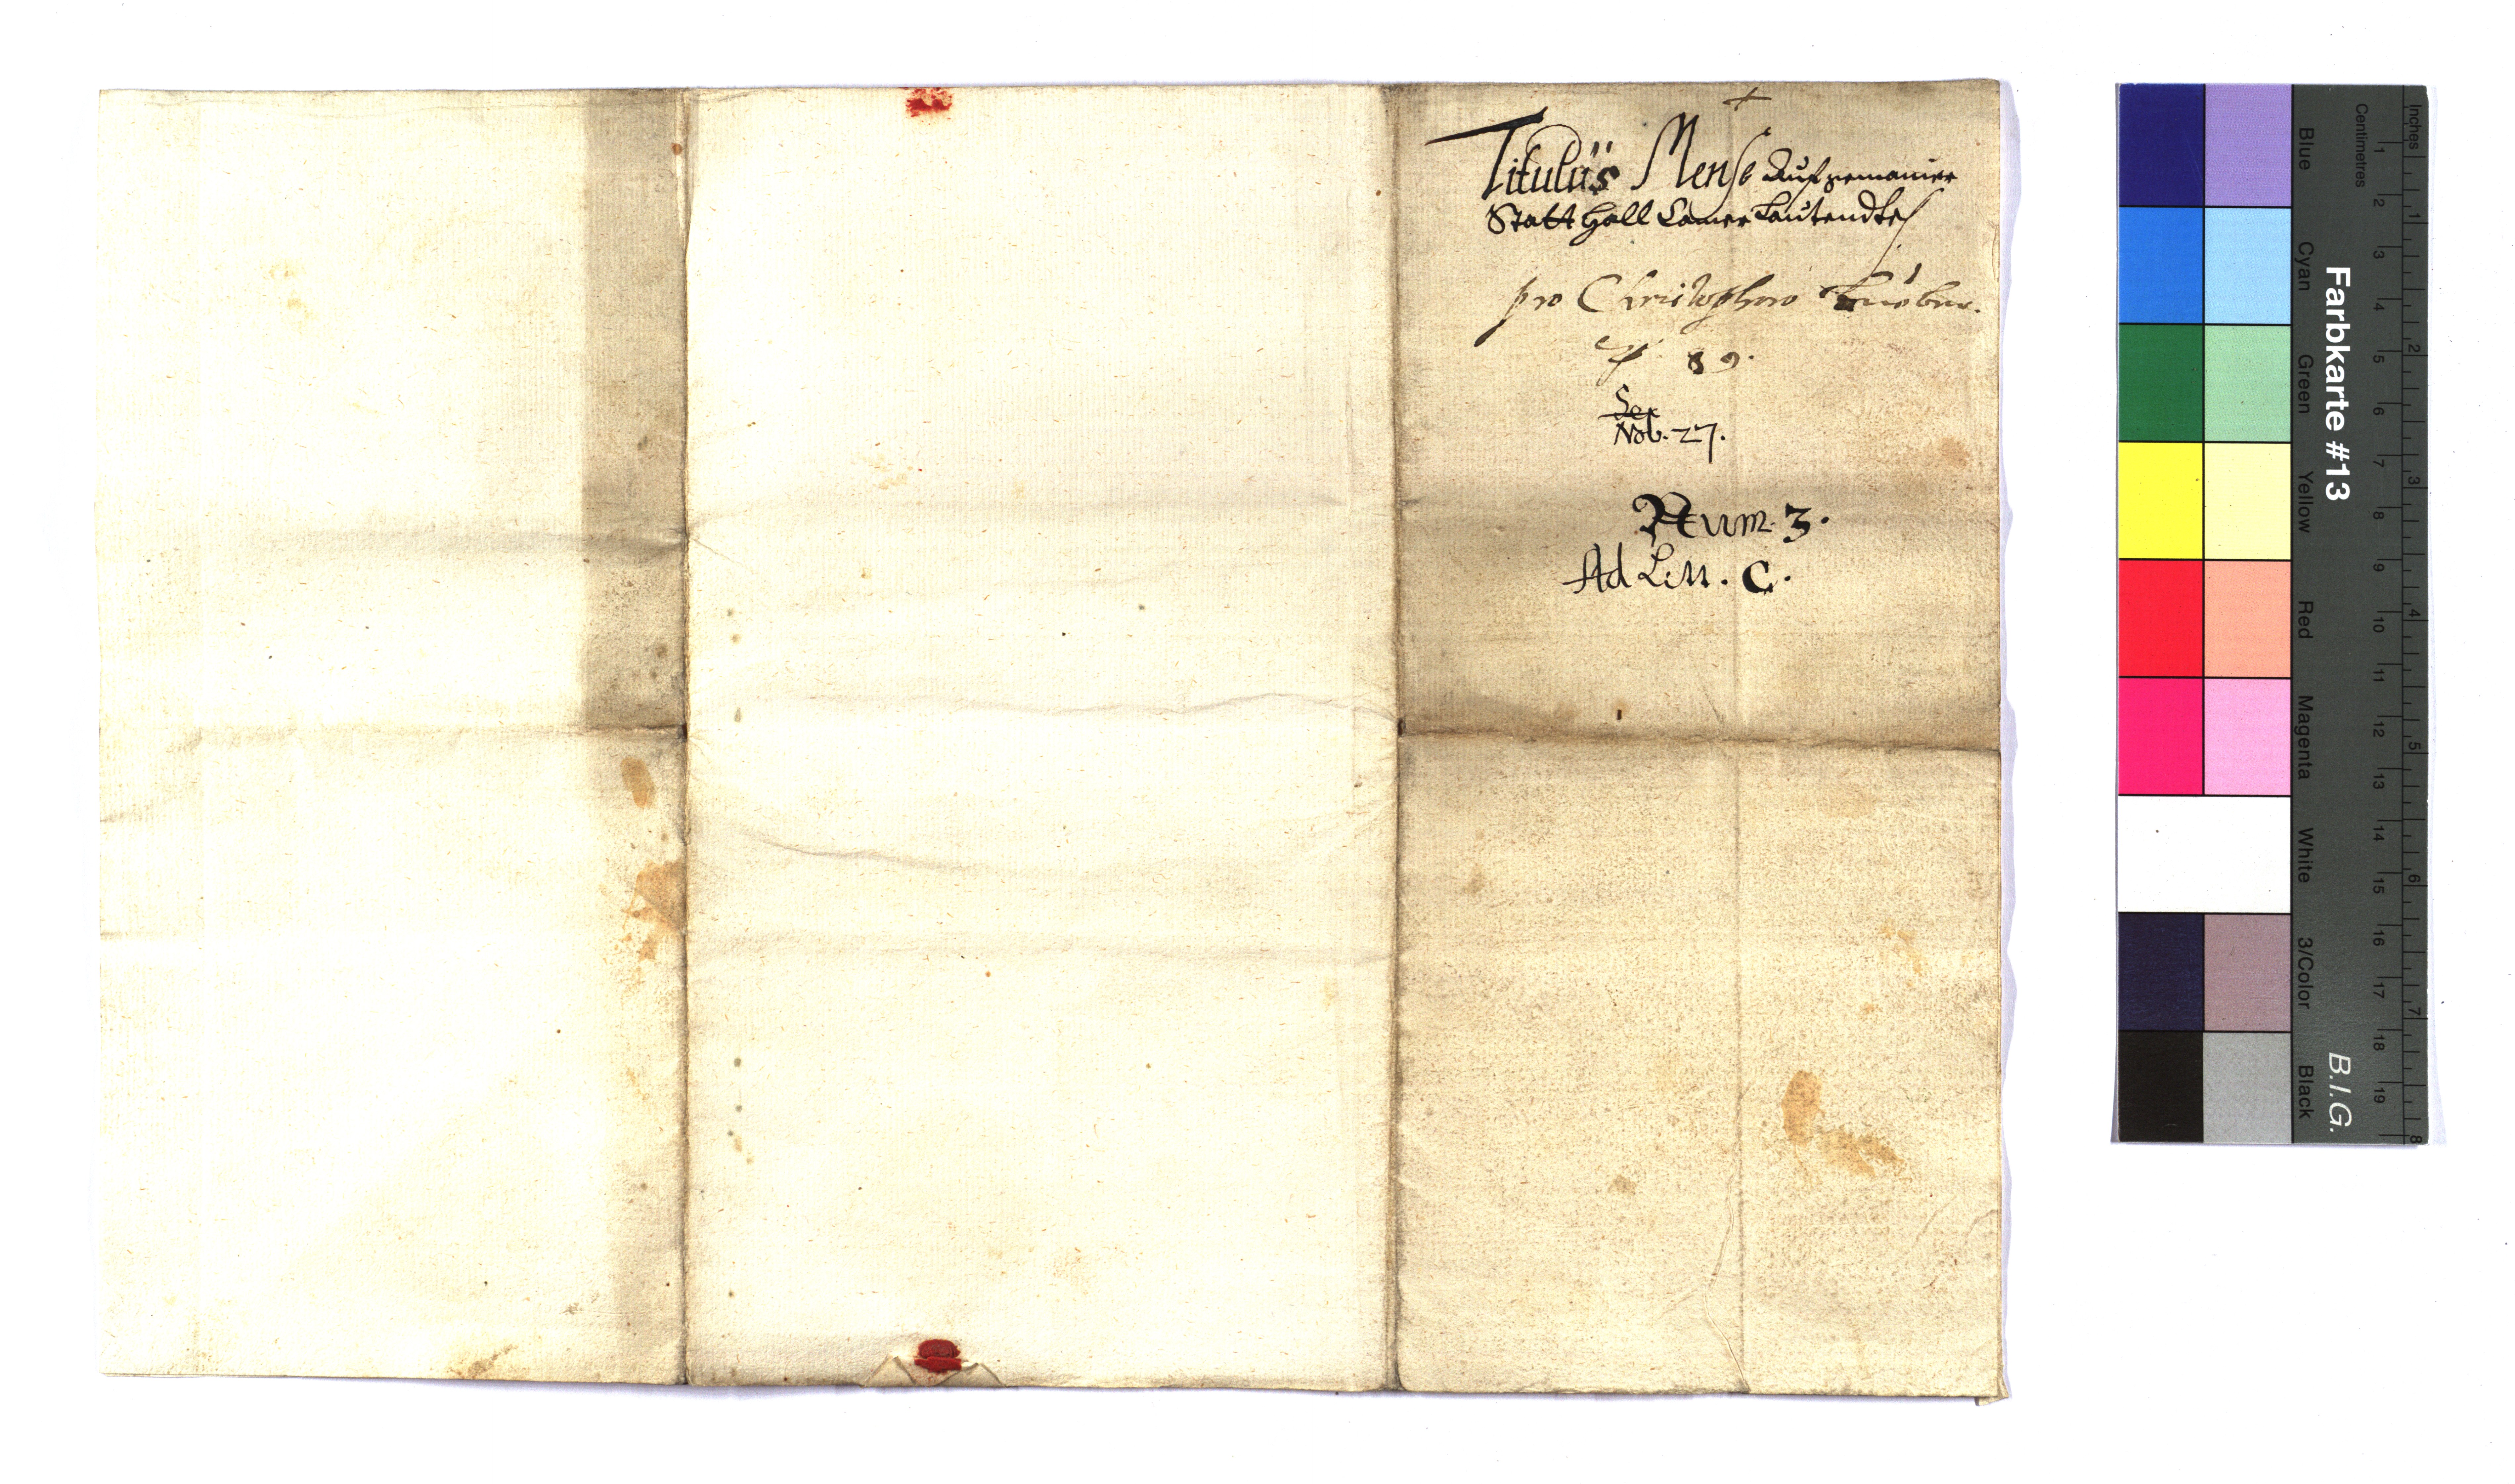 Titulus Mense Auf gemainer
Statt Hall Camer Lautendt
pro Christophoro
89.
Nob. 27.
Num. 3.
Ad Litt. C.
Blue
Cyan
Green
Yellow
Red
Magenta
White
3/Color
Black
Farbkarte #13
B.I.G.
Centimetres
1 2 3 4 5 6 7 8 9 10 11 12 13 14 15 16 17 18 19
Inches
1 2 3 4 5 6 7 8